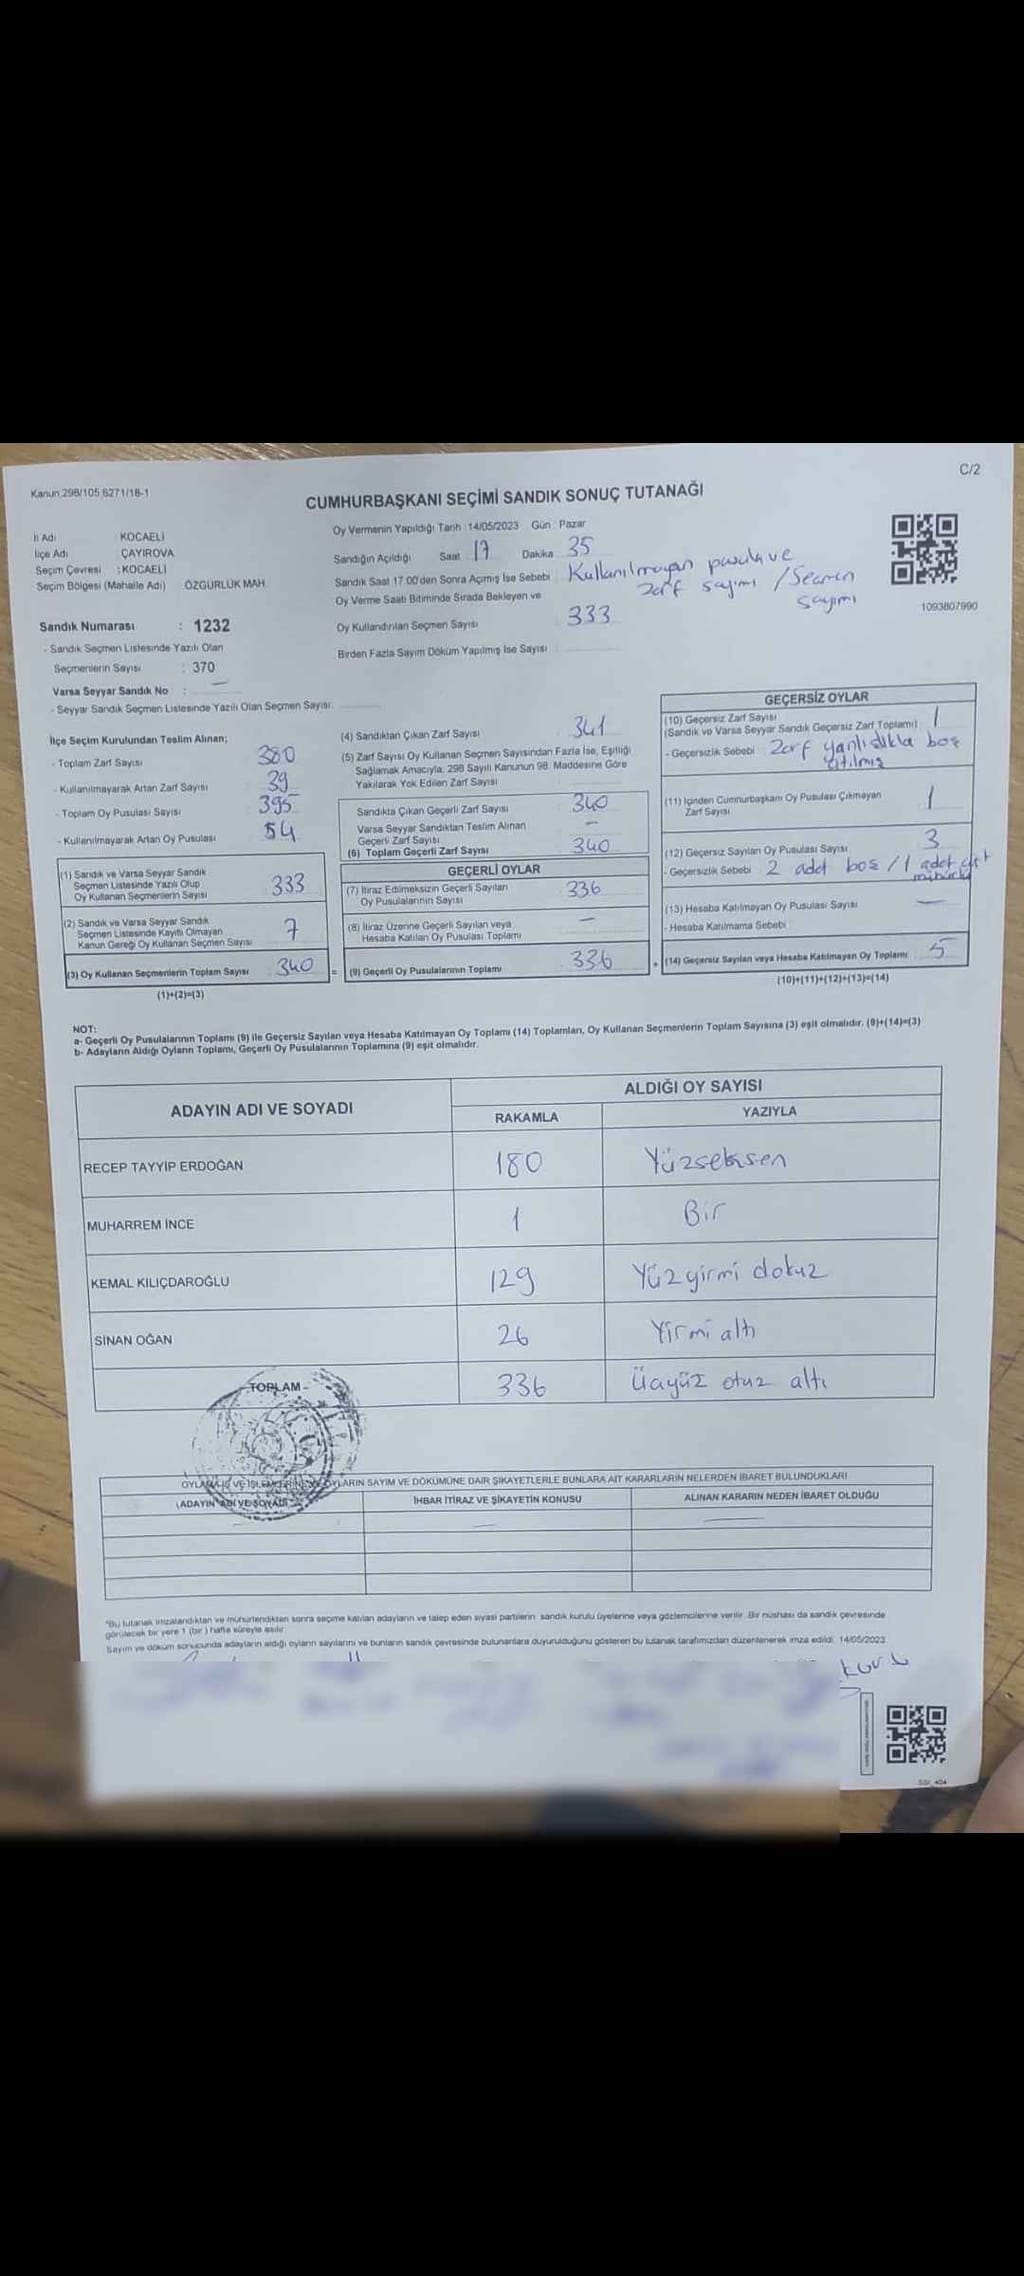 C/2
Kanun:298/105,6271/18-1
CUMHURBAŞKANI SEÇİMİ SANDIK SONUÇ TUTANAĞI
İl Adı : KOCAELİ
İlçe Adı : ÇAYIROVA
Seçim Çevresi : KOCAELİ
Seçim Bölgesi (Mahalle Adı) ÖZGÜRLÜK MAH.
Sandık Numarası : 1232
- Sandık Seçmen Listesinde Yazılı Olan
Seçmenlerin Sayısı : 370
Varsa Seyyar Sandık No : —
- Seyyar Sandık Seçmen Listesinde Yazılı Olan Seçmen Sayısı:
Oy Vermenin Yapıldığı Tarih : 14/05/2023 Gün : Pazar
Sandığın Açıldığı Saat 17 Dakika 35
Sandık Saat 17:00'den Sonra Açmış İse Sebebi : Kullanılmayan pusula ve
zarf sayımı / Seçmen
sayımı
Oy Verme Saati Bitiminde Sırada Bekleyen ve
Oy Kullandırılan Seçmen Sayısı 333
Birden Fazla Sayım Döküm Yapılmış İse Sayısı :
1093807990
İlçe Seçim Kurulundan Teslim Alınan;
- Toplam Zarf Sayısı 380
- Kullanılmayarak Artan Zarf Sayısı 39
- Toplam Oy Pusulası Sayısı 395
- Kullanılmayarak Artan Oy Pusulası 54
(1) Sandık ve Varsa Seyyar Sandık
Seçmen Listesinde Yazılı Olup
Oy Kullanan Seçmenlerin Sayısı 333
(2) Sandık ve Varsa Seyyar Sandık
Seçmen Listesinde Kayıtlı Olmayan
Kanun Gereği Oy Kullanan Seçmen Sayısı 7
(3) Oy Kullanan Seçmenlerin Toplam Sayısı 340
(1)+(2)=(3)
(4) Sandıktan Çıkan Zarf Sayısı 341
(5) Zarf Sayısı Oy Kullanan Seçmen Sayısından Fazla İse, Eşitliği
Sağlamak Amacıyla; 298 Sayılı Kanunun 98. Maddesine Göre
Yakılarak Yok Edilen Zarf Sayısı
Sandıkta Çıkan Geçerli Zarf Sayısı 340
Varsa Seyyar Sandıktan Teslim Alınan
Geçerli Zarf Sayısı —
(6) Toplam Geçerli Zarf Sayısı 340
GEÇERLİ OYLAR
(7) İtiraz Edilmeksizin Geçerli Sayılan
Oy Pusulalarının Sayısı 336
(8) İtiraz Üzerine Geçerli Sayılan veya
Hesaba Katılan Oy Pusulası Toplamı —
= (9) Geçerli Oy Pusulalarının Toplamı 336
GEÇERSİZ OYLAR
(10) Geçersiz Zarf Sayısı
(Sandık ve Varsa Seyyar Sandık Geçersiz Zarf Toplamı) 1
- Geçersizlik Sebebi Zarf yanlışlıkla boş
atılmış
(11) İçinden Cumhurbaşkanı Oy Pusulası Çıkmayan
Zarf Sayısı 1
(12) Geçersiz Sayılan Oy Pusulası Sayısı 3
- Geçersizlik Sebebi 2 adet boş / 1 adet çift
mühürlü
(13) Hesaba Katılmayan Oy Pusulası Sayısı —
- Hesaba Katılmama Sebebi
+ (14) Geçersiz Sayılan veya Hesaba Katılmayan Oy Toplamı 5
(10)+(11)+(12)+(13)=(14)
NOT:
a- Geçerli Oy Pusulalarının Toplamı (9) ile Geçersiz Sayılan veya Hesaba Katılmayan Oy Toplamı (14) Toplamları, Oy Kullanan Seçmenlerin Toplam Sayısına (3) eşit olmalıdır. (9)+(14)=(3)
b- Adayların Aldığı Oyların Toplamı, Geçerli Oy Pusulalarının Toplamına (9) eşit olmalıdır.
ADAYIN ADI VE SOYADI
ALDIĞI OY SAYISI
RAKAMLA YAZIYLA
RECEP TAYYİP ERDOĞAN 180 Yüzseksen
MUHARREM İNCE 1 Bir
KEMAL KILIÇDAROĞLU 129 Yüzyirmi dokuz
SİNAN OĞAN 26 Yirmi altı
TOPLAM 336 Üçyüz otuz altı
OYLAMA İŞ VE İŞLEMLERİNE VE OYLARIN SAYIM VE DÖKÜMÜNE DAİR ŞİKAYETLERLE BUNLARA AİT KARARLARIN NELERDEN İBARET BULUNDUKLARI
ADAYIN ADI VE SOYADI İHBAR İTİRAZ VE ŞİKAYETİN KONUSU ALINAN KARARIN NEDEN İBARET OLDUĞU
— —
*Bu tutanak imzalandıktan ve mühürlendikten sonra seçime katılan adayların ve talep eden siyasi partilerin sandık kurulu üyelerine veya gözlemcilerine verilir. Bir nüshası da sandık çevresinde
görülecek bir yere 1 (bir) hafta süreyle asılır.
Sayım ve döküm sonucunda adayların aldığı oyların sayılarını ve bunların sandık çevresinde bulunanlara duyurulduğunu gösteren bu tutanak tarafımızdan düzenlenerek imza edildi. 14/05/2023